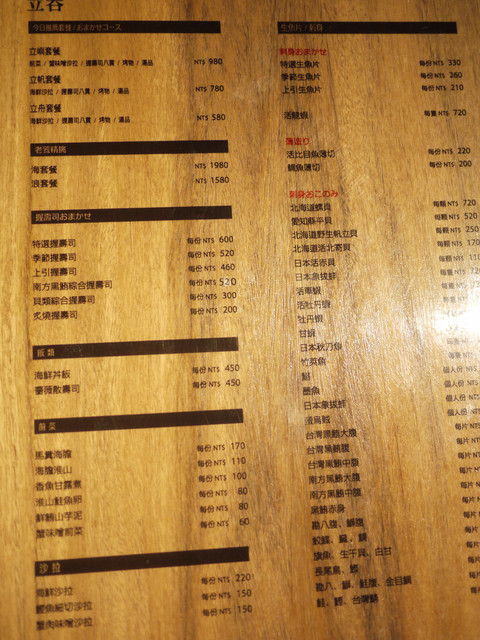 立吞
今日推薦套餐/おまかせコース
立嶼套餐
前菜 / 蟹味噌沙拉 / 握壽司八貫 / 烤物 / 湯品 NT$ 980
立帆套餐
海鮮沙拉 / 握壽司八貫 / 烤物 / 湯品 NT$ 780
立舟套餐
海鮮沙拉 / 握壽司六貫 / 烤物 / 湯品 NT$ 580
老饕精挑
海套餐 NT$ 1980
浪套餐 NT$ 1580
握壽司おまかせ
特選握壽司 每份 NT$ 600
季節握壽司 每份 NT$ 520
上引握壽司 每份 NT$ 460
南方黑鮪綜合握壽司 每份 NT$ 520
貝類綜合握壽司 每份 NT$ 300
炙燒握壽司 每份 NT$ 200
飯類
海鮮丼飯 每份 NT$ 450
薔薇散壽司 每份 NT$ 450
前菜
馬糞海膽 每份 NT$ 170
海膽淮山 每份 NT$ 110
香魚甘露煮 每份 NT$ 100
淮山鮭魚卵 每份 NT$ 80
鮮鮪山芋泥 每份 NT$ 80
蟹味噌前菜 每份 NT$ 60
沙拉
海鮮沙拉 每份 NT$ 220
鰹魚細切沙拉 每份 NT$ 150
蟹肉味噌沙拉 每份 NT$ 150
生魚片 / 刺身
刺身おまかせ
特選生魚片 每份 NT$ 330
季節生魚片 每份 NT$ 260
上引生魚片 每份 NT$ 210
活龍蝦 每隻 NT$ 720
薄造り
活比目魚薄切 每份 NT$ 220
鯛魚薄切 每份 NT$ 200
刺身おこのみ
北海道螺貝 每顆 NT$ 720
愛知縣平貝 每顆 NT$ 520
北海道野生帆立貝 每顆 NT$ 250
北海道活北寄貝 每顆 NT$ 170
日本活赤貝 每顆 NT$ 110
日本象拔蚌 每隻 NT$ 720
活車蝦 每隻 NT$
活牡丹蝦 每隻 NT$
牡丹蝦 每隻 NT$
甘蝦 每隻 NT$
日本秋刀魚 每隻 NT$
竹莢魚 每隻 NT$
個人份 NT$
墨魚 個人份 NT$
日本象拔蚌 個人份 NT$
個人份 N
台灣黑鮪大腹 每片 NT$
台灣黑鮪腹 每片 NT$
台灣黑鮪中腹 每片 NT$
南方黑鮪大腹 每片 NT$
南方黑鮪中腹 每片 NT$
黑鮪赤身 每片 NT
勘八腹、鰤腹 每片 N
旗魚、生干貝、白甘 每片
長尾鳥、鰹 每片
勘八、鰤、鮭腹、金目鯛 每片
鮭、鰹、台灣鯛 每片